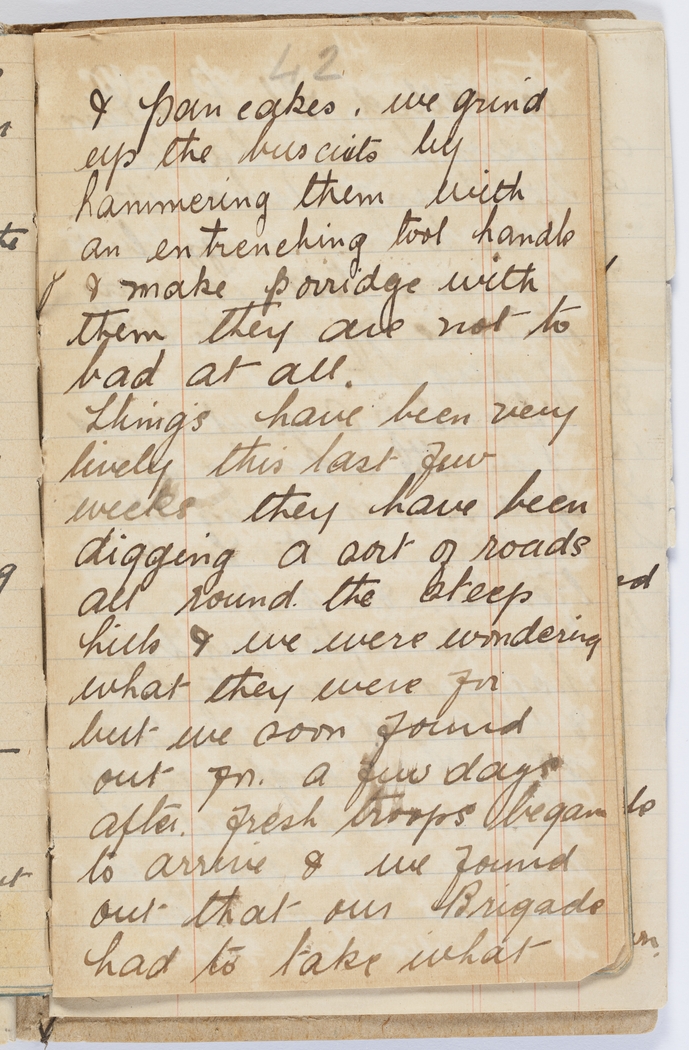 42
& pan cakes. we grind
up the buscuits by
hammering them with
an entrenching tool handle
& make porridge with
them they are not to
bad at all.
Things have been very
lively this last few
weeks they have been
digging a sort of roads
all round. the steep
hills & we were wondering
what they were for
but we soon found
out for. a few days
after. fresh troops began
to arrive & we found
out that our Brigade
had to take what